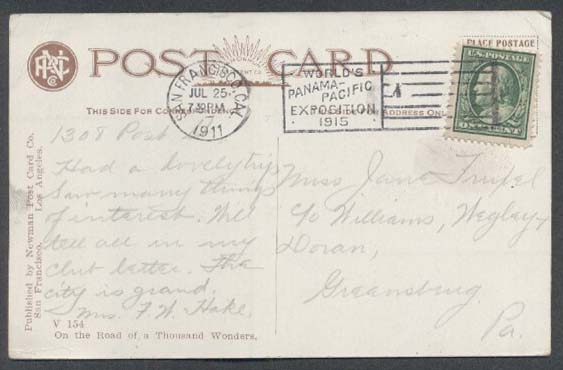 POST CARD
PLACE POSTAGE
SAN FRANCISCO, CAL.
JUL 25
7-30 PM
1911
WORLD'S
PANAMA-
PACIFIC
EXPOSITION
1915
U.S. POSTAGE
ONE CENT
THIS SIDE FOR CORRESPONDENCE
SIDE FOR ADDRESS ONLY
1308 Post
Had a lovely trip
Saw many things
of interest. Will
tell all in my
club letter. The
city is grand.
Mrs. F. W. Hake.
Miss Jane
c/o Williams, Wegley &
Doran,
Greensburg
Pa.
Published by Newman Post Card Co.
San Francisco. Los Angeles.
V 154
On the Road of a Thousand Wonders.